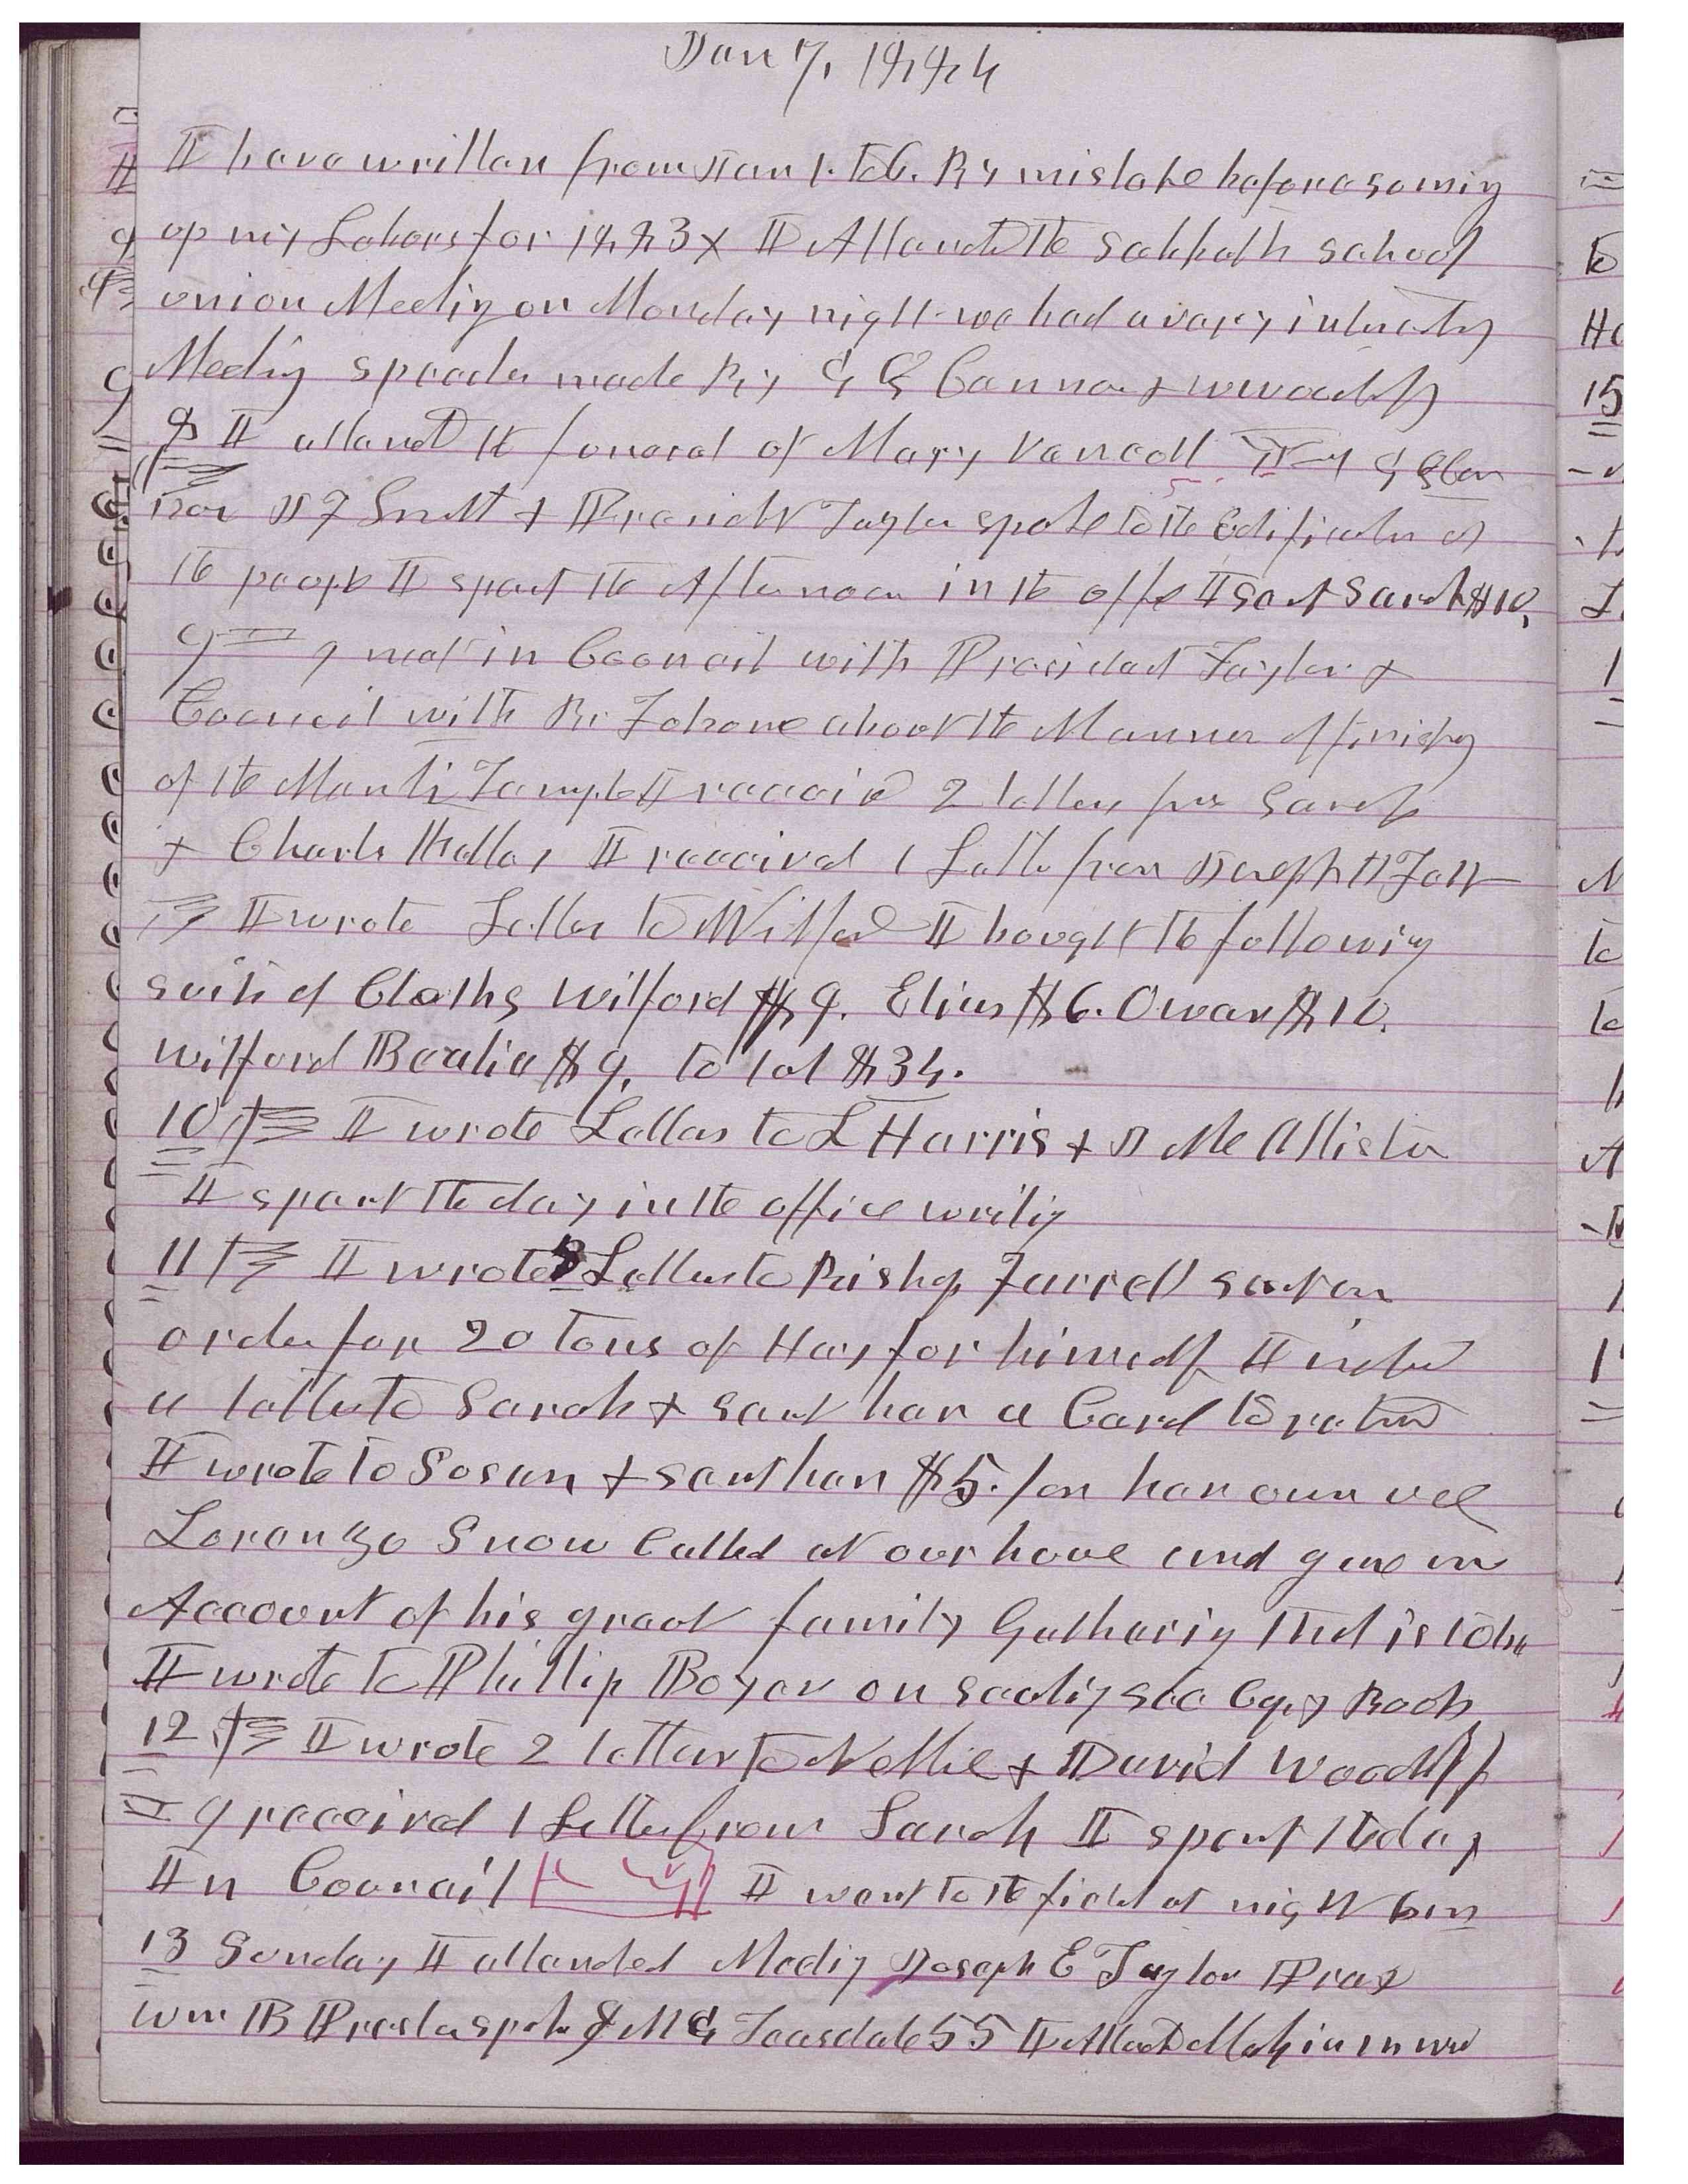 Jan 7, 1884
I have written from Jan 1. to 6. By mistake before suming
up my Labors for 1883 X I Attended the Sabbath School
union Meeting on Monday night we had a very interesting
Meeting speeches made By G Q Cannon & W Woodruff
8 I attend the funeral of Mary Vancott G Q Can
non J F Smith & President Taylor spoke to the Edification of
the people I spent the Afternoon in the office I sent Sarah $10,
9 I met in Council with President Taylor &
Council with Br Folsome about the Manner of finishing
of the Manti Temple I receivd 2 letters from Sarah
& Charls Kelley I received 1 Letter from Joseph H Fell
I wrote Letter to Wilford I bought the following
suits of Cloths Wilford $9. Elias $6. Owen $10.
Wilford Beatie $9, total $34.
10th I wrote Letters to L Harris & D McAllister
I spent the day in the office writing
11th I wrote 3 Letters to Bishop Farrell sent an
order for 20 tons of Hay for himself I wrote
a letter to Sarah & sent her a Card to return
I wrote to Susan & sent her $5. for her own use
Lorenzo Snow Called at our house and gave an
Account of his great family Gathering that is to be
I wrote to Phillip Boyer on sealing see Copy Book
12th I wrote 2 letters to Nellie & David Woodruff
I received 1 Letter from Sarah I spent the day
In Council I went to the field at night 6 m
13 Sunday I attended Meeting Joseph E Taylor Prayed
Wm B Preston spoke & M G Teasdale 55 I Attend Meeting in